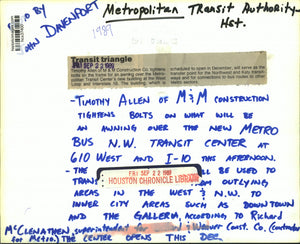 O BY
OHN DAVENPORT
1989
Metropolitan Transit Authority-
Hst.
Transit triangle
FRI SEP 22 1989
Timothy Allen of M & M Construction Co, tightens
bolts on the frame for an awning over the Metro-
politan Transit Center's new building at the West
Loop and Interstate 10. The building, which is
scheduled to open in December, will serve as the
transfer point for the Northwest and Katy transit-
ways and for connections to bus routes to other
Metro
-TIMOTHY ALLEN OF M&M CONSTRUCTION
TIGHTENS BOLTS ON WHAT WILL BE
AN AWNING OVER THE NEW METRO
BUS N.W. TRANSIT CENTER AT
610 WEST AND I-10 THIS AFTERNOON.
-THE WILL BE USED TO
FRI SEP 22 1989
TRANS OUTLYING
HOUSTON CHRONICLE LIBRARY
AREAS IN THE WEST & N.W. TO
INNER CITY AREAS SUCH AS DOWNTOWN
AND THE GALLERIA, ACCORDING TO RICHARD
McCLENATHEN, Waiver Const. Co. (
for METRO) THE CENTER OPENS THIS DEC.